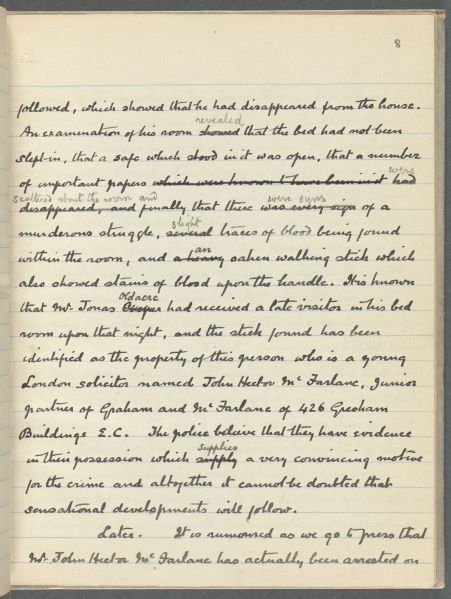 8
followed, which showed that he had disappeared from the house.
revealed
An examination of his room showed that the bed had not been
slept in, that a safe which stood in it was open, that a number
were
of important papers which were known to have been in it had
scattered about the room and were signs
disappeared, and finally that there was every sign of a
slight
murderous struggle, several traces of blood being found
an
within the room, and a heavy oaken walking stick which
also showed stains of blood upon the handle. It is known
Oldacre
that Mr Jonas Cooper had received a late visitor in his bed
room upon that night, and the stick found has been
identified as the property of this person who is a young
London solicitor named John Hector McFarlane, junior
partner of Graham and McFarlane of 426 Gresham
Buildings E.C. The police believe that they have evidence
supplies
in their possession which supply a very convincing motive
for the crime and altogether it cannot be doubted that
sensational developments will follow.
Later. It is rumoured as we go to press that
Mr John Hector McFarlane has actually been arrested on